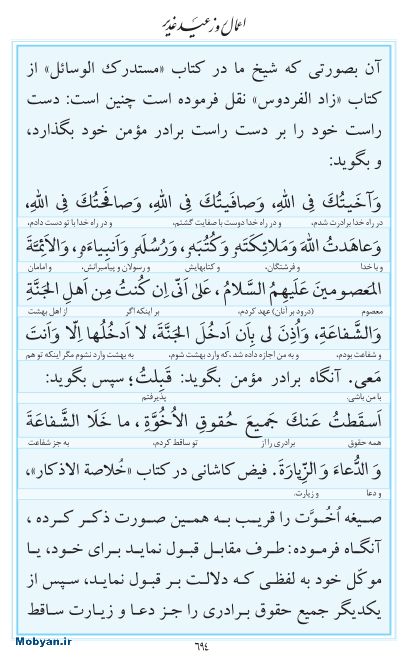 اعمال روز عید غدیر
آن بصورتی که شیخ ما در کتاب «مستدرک الوسائل» از
کتاب «زاد الفردوس» نقل فرموده است چنین است: دست
راست خود را بر دست راست برادر مؤمن خود بگذارد،
و بگوید:
وَآخَیتُكَ فِی اللهِ، وَصافَیتُكَ فِی اللهِ، وَصافَحتُكَ فِی اللهِ،
در راه خدا برادرت شدم، و در راه خدا دوست با صفایت گشتم، و در راه خدا با تو دست دادم،
وَعاهَدتُ اللهَ وَمَلائِکَتَه وَکُتُبَه، وَرُسُلَه وَاَنبِیاءَه، وَالاَئِمَّةَ
و با خدا و فرشتگان، و کتابهایش و رسولان و پیامبرانش، و امامان
المَعصومینَ عَلَیهِمُ السَّلامُ، عَلی اَنّی اِن کُنتُ مِن اَهلِ الجَنَّةِ
معصوم (درود بر آنان) عهد کردم، بر اینکه اگر از اهل بهشت
وَالشَّفاعَةِ، وَاُذِنَ لی بِاَن اَدخُلَ الجَنَّةَ، لا اَدخُلُها اِلّا وَاَنتَ
و شفاعت بودم، و به من اجازه داده شد، که وارد بهشت شوم، به بهشت وارد نشوم مگر اینکه تو هم
مَعی. آنگاه برادر مؤمن بگوید: قَبِلتُ؛ سپس بگوید:
با من باشی. پذیرفتم
اَسقَطتُ عَنكَ جَمیعَ حُقوقِ الاُخُوَّةِ، ما خَلَا الشَّفاعَةَ
همه حقوق برادری را از تو ساقط کردم، به جز شفاعت
وَ الدُّعاءَ وَ الزِّیارَةَ. فیض کاشانی در کتاب «خُلاصة الاذکار»،
و دعا و زیارت.
صیغه اُخُوَّت را قریب به همین صورت ذکر کرده،
آنگاه فرموده: طرف مقابل قبول نماید برای خود، یا
موکّل خود به لفظی که دلالت بر قبول نماید، سپس از
یکدیگر جمیع حقوق برادری را جز دعا و زیارت ساقط
Mobyan.ir
٦٩٤